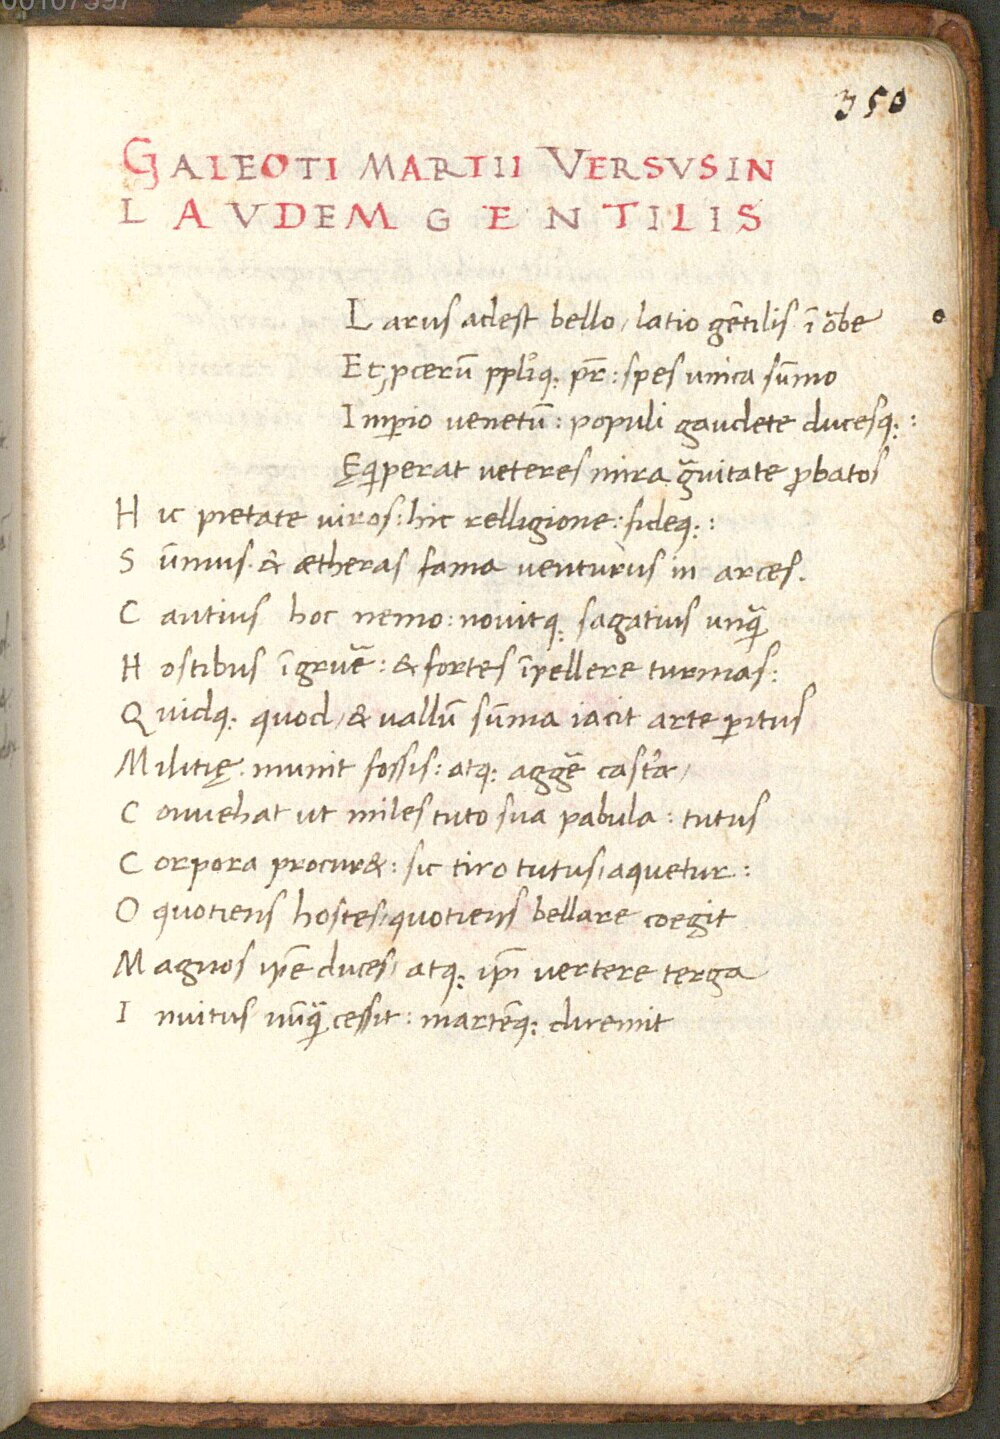 350
GALEOTI MARTII VERSVS IN
LAVDEM GENTILIS
Larus adest bello, latio gẽtilis ĩ õbe
Et, pcerũ pplĩq; pr̃: spes unica sũmo
Imperio venetũ: populi gaudete ducesq; :
Ęqiperat veteres mira g̃uitate probatos
Hic pietate viros: hic relligione: fideq; :
Sũmus. & ætheras fama venturus in arces.
Cautius hoc nemo: novitq; sagatius unq̃
Hostibus ĩgruẽ: & fortes ĩpellere turmas:
Quidq; quod, & vallũ sũma iacit arte peritus
Militię. munit fossis: atq; aggẽ castra,
Convehat ut miles tuto sua pabula: tutus
Corpora procur&: sic tiro tutus, aquetur:
O quotiens hostes, quotiens bellare coegit
Magnos ip̃e duces, atq; ip̃i vertere terga
Invitus nũq̃ cessit: martẽq; diremit